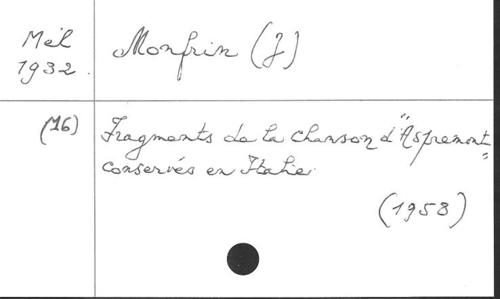 Mél
1932.
Monfrin (J)
(16)
Fragments de la Chanson d'"Aspremont"
conservés en Italie.
(1958)